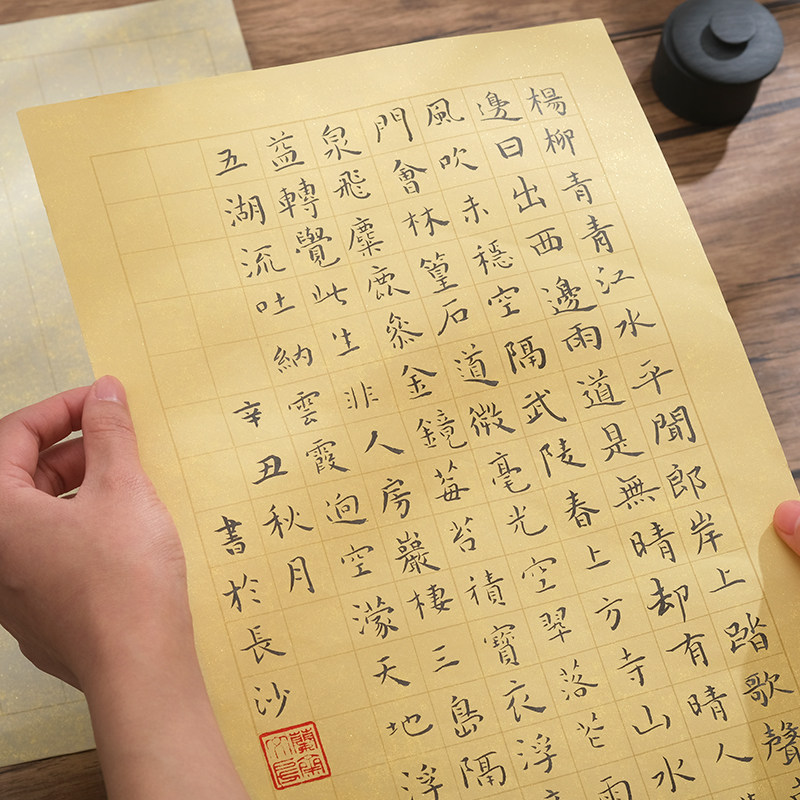 楊柳青青江水平聞郎岸上踏歌聲
邊日出西邊雨道是無晴却有晴人
風吹未穩空隔武陵春上方寺山水
門會林篁石道微毫光空翠落芒雨
泉飛麋鹿參金鏡莓苔積寶衣浮
益轉覺此生非人房巖棲三島隔
五湖流吐納雲霞迥空濛天地浮
辛丑秋月
書於長沙